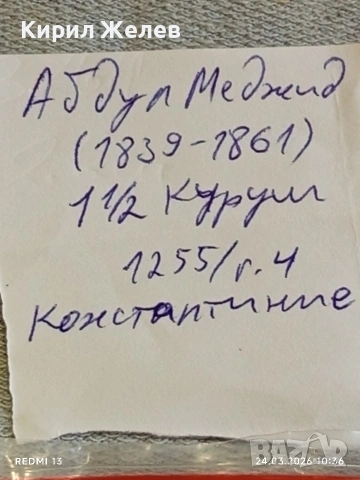 Кирил Желев
Абдул Меджид
(1839-1861)
1 1/2 Куруш
1255/г.4
Константиние
REDMI 13
24.03.2026 10:36
BAZAR